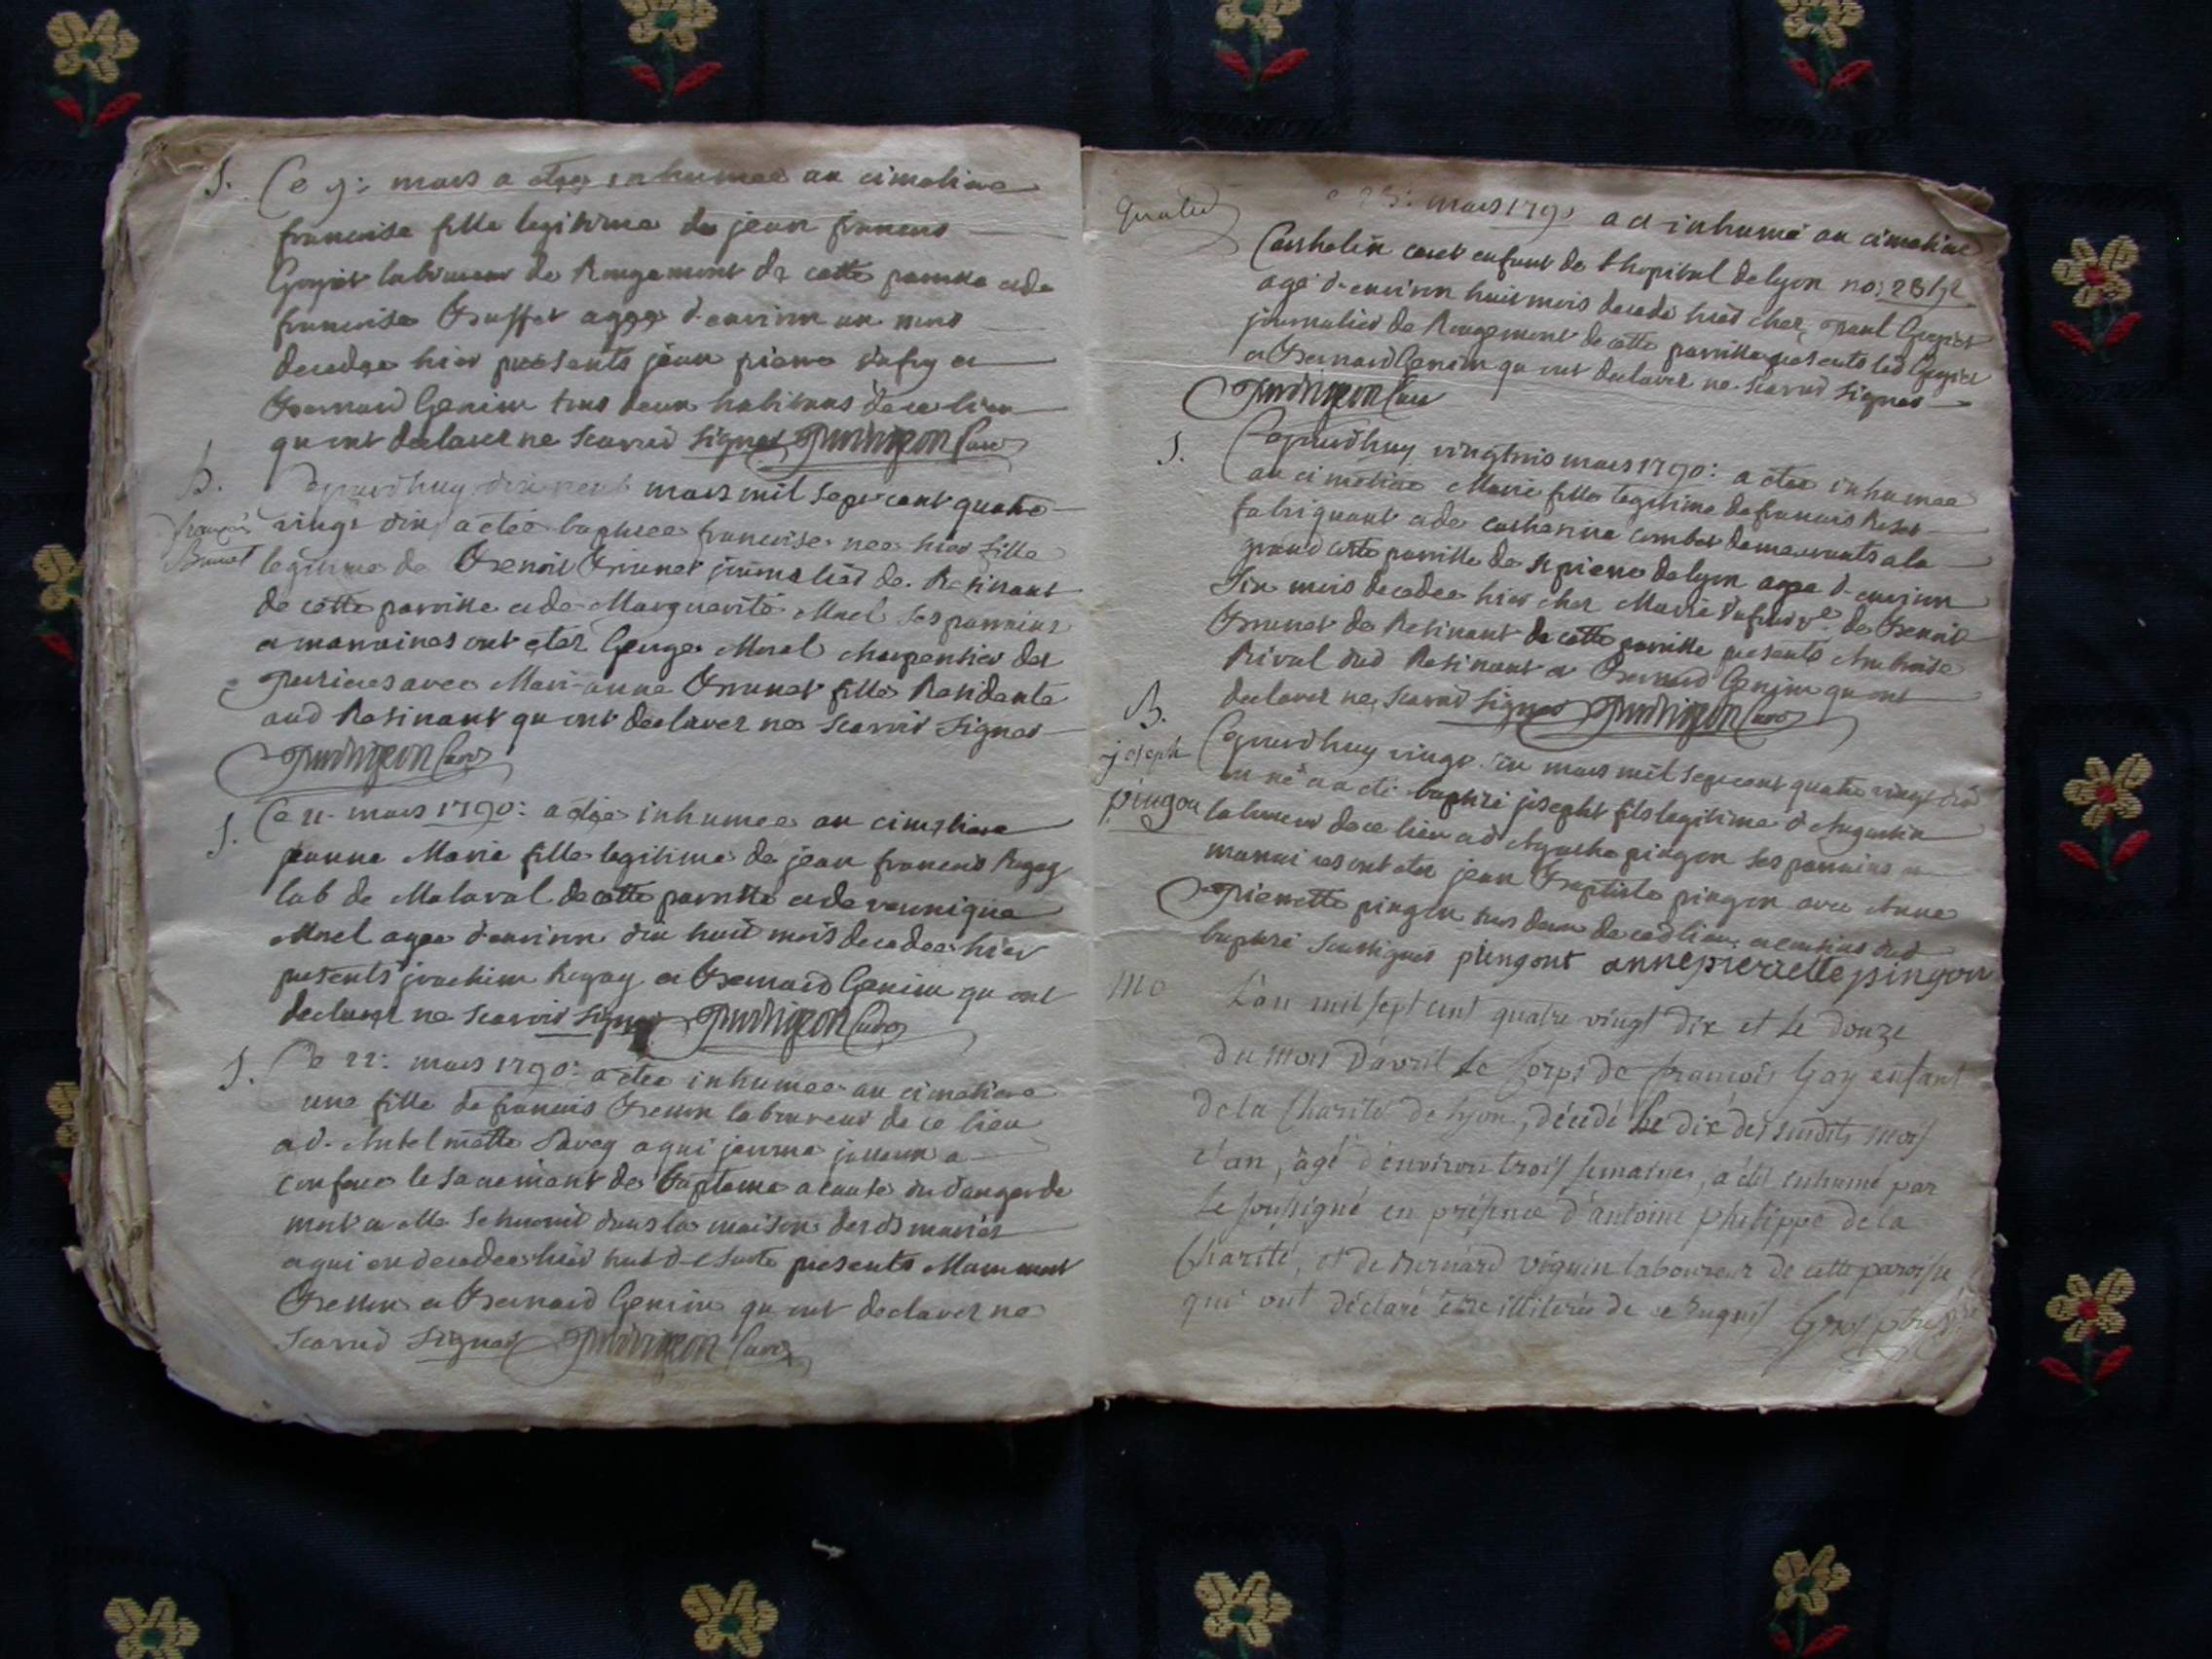 S. Ce 9: mars a etee inhumee au cimetiere
francoise fille legitime de jean francois
Goyet laboureur de Rougemont de cette paroisse et de
francoise Buffet agee d'environ un mois
decedee hier presents jean pierre et
Bernard Genin tous deux habitans de ce lieu
qu ont declarer ne scavoir signer Curé
B. aujourdhuy dix neuf mars mil sept cent quatre
francoise vingt dix a etée baptisee francoise nee hier fille
Brunet legitime de Benoit Brunet journalier de Resinant
de cette paroisse et de Marguerite Morel ses parrains
et marraines ont eter George Morel charpentier de
avec Marianne Brunet fille Residente
aud Resinant qu ont declarer ne scavoir signer
Curé
S. Ce 21 mars 1790: a etee inhumee au cimetiere
jeanne Marie fille legitime de jean francois Rugay
lab de Malaval de cette paroisse et de veronique
Morel agee d'environ dix huit mois decedee hier
presents joachim Rugay et Bernard Genin qu ont
declarer ne scavoir signer Curé
S. Ce 22: mars 1790: a etee inhumee au cimetiere
une fille de francois laboureur de ce lieu
et d'Antelmette Savey a qui
confere le sacrement de Bapteme a cause du danger de
mort ou elle se trouvoit dans la maison desds mariés
a qui en decedee hier presents
et Bernard Genin qu ont declarer ne
scavoir signer Curé
mars 1790 a et inhumé au cimetiere
enfant de l hopital de lyon no:
agé d'environ huit mois decede hier chez paul Goyet
journalier de Rougemont de cette paroisse presents led Goyet
et Bernard Genin qu ont declarer ne scavoir signer
Curé
S. Cejourdhuy vingtrois mars 1790: a etee inhumee
au cimetiere Marie fille legitime de francois
fabriquant et de catherine combet demeurants a la
grand cote paroisse de st pierre de lyon agee d'environ
six mois decedee hier chez Marie ve de Benoit
Brunet de Resinant de cette paroisse presents Ambroise
Rival dud Resinant et Bernard Genin qu ont
declarer ne scavoir signer Curé
B. Cejourdhuy vingt six mars mil sept cent quatre vingt dix
joseph en né a eté baptisé joseph fils legitime d'Augustin
pingon laboureur de ce lieu et d'Agathe pingon ses parrains et
marraines ont eter jean Baptiste pingon avec Anne
Pierrette pingon tous deux de ced lieu et cousins dud
baptisé soussignés pingont anne pierette pingon
mo L'an mil sept cent quatre vingt dix et le douze
du mois d'avril le corps de francois Gay enfant
de la charité de lyon, décédé le dix des susdits mois
et an, agé d'environ trois semaines, a été inhumé par
le soussigné en présence d'antoine philippe de la
charité, et de Bernard vignin laboureur de cette paroisse
qui ont déclaré etre illiterés de ce requis